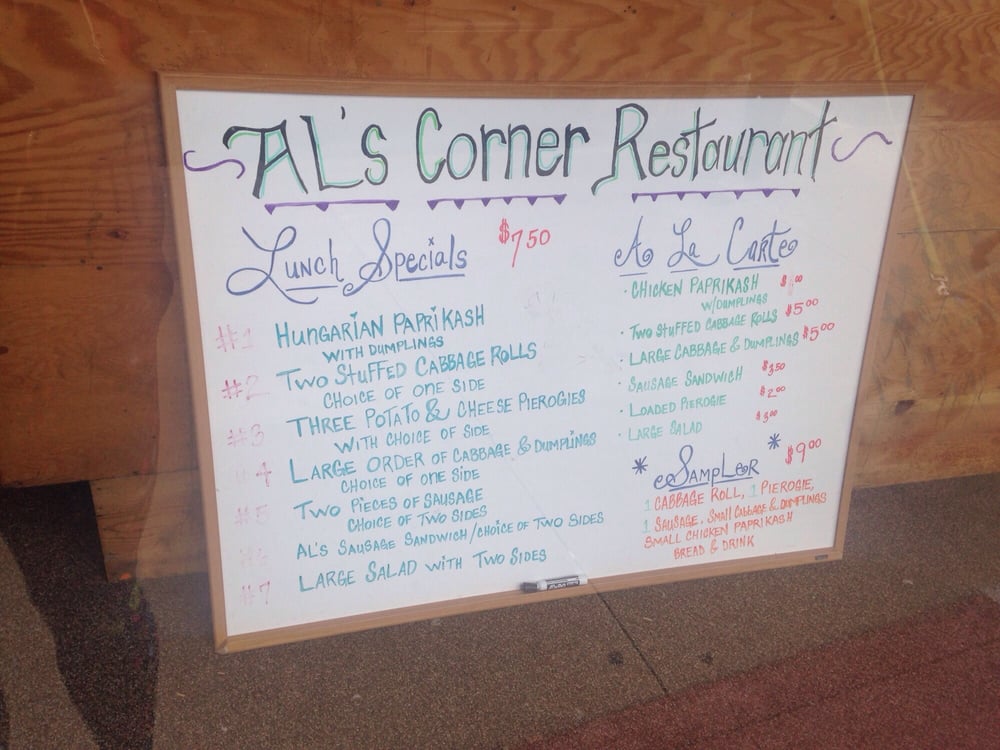 AL's Corner Restaurant
Lunch Specials $7.50
#1 HUNGARIAN PAPRIKASH
WITH DUMPLINGS
#2 TWO STUFFED CABBAGE ROLLS
CHOICE OF ONE SIDE
#3 THREE POTATO & CHEESE PIEROGIES
WITH CHOICE OF SIDE
4 LARGE ORDER OF CABBAGE & DUMPLINGS
CHOICE OF ONE SIDE
#5 TWO PIECES OF SAUSAGE
CHOICE OF TWO SIDES
AL'S SAUSAGE SANDWICH/CHOICE OF TWO SIDES
#7 LARGE SALAD WITH TWO SIDES
A La Carte
· CHICKEN PAPRIKASH
W/DUMPLINGS
· TWO STUFFED CABBAGE ROLLS $5.00
· LARGE CABBAGE & DUMPLINGS $5.00
· SAUSAGE SANDWICH $3.50
· LOADED PIEROGIE $2.00
· LARGE SALAD $3.00
* SAMPLER * $9.00
1 CABBAGE ROLL, 1 PIEROGIE,
1 SAUSAGE, SMALL CABBAGE & DUMPLINGS
SMALL CHICKEN PAPRIKASH
BREAD & DRINK